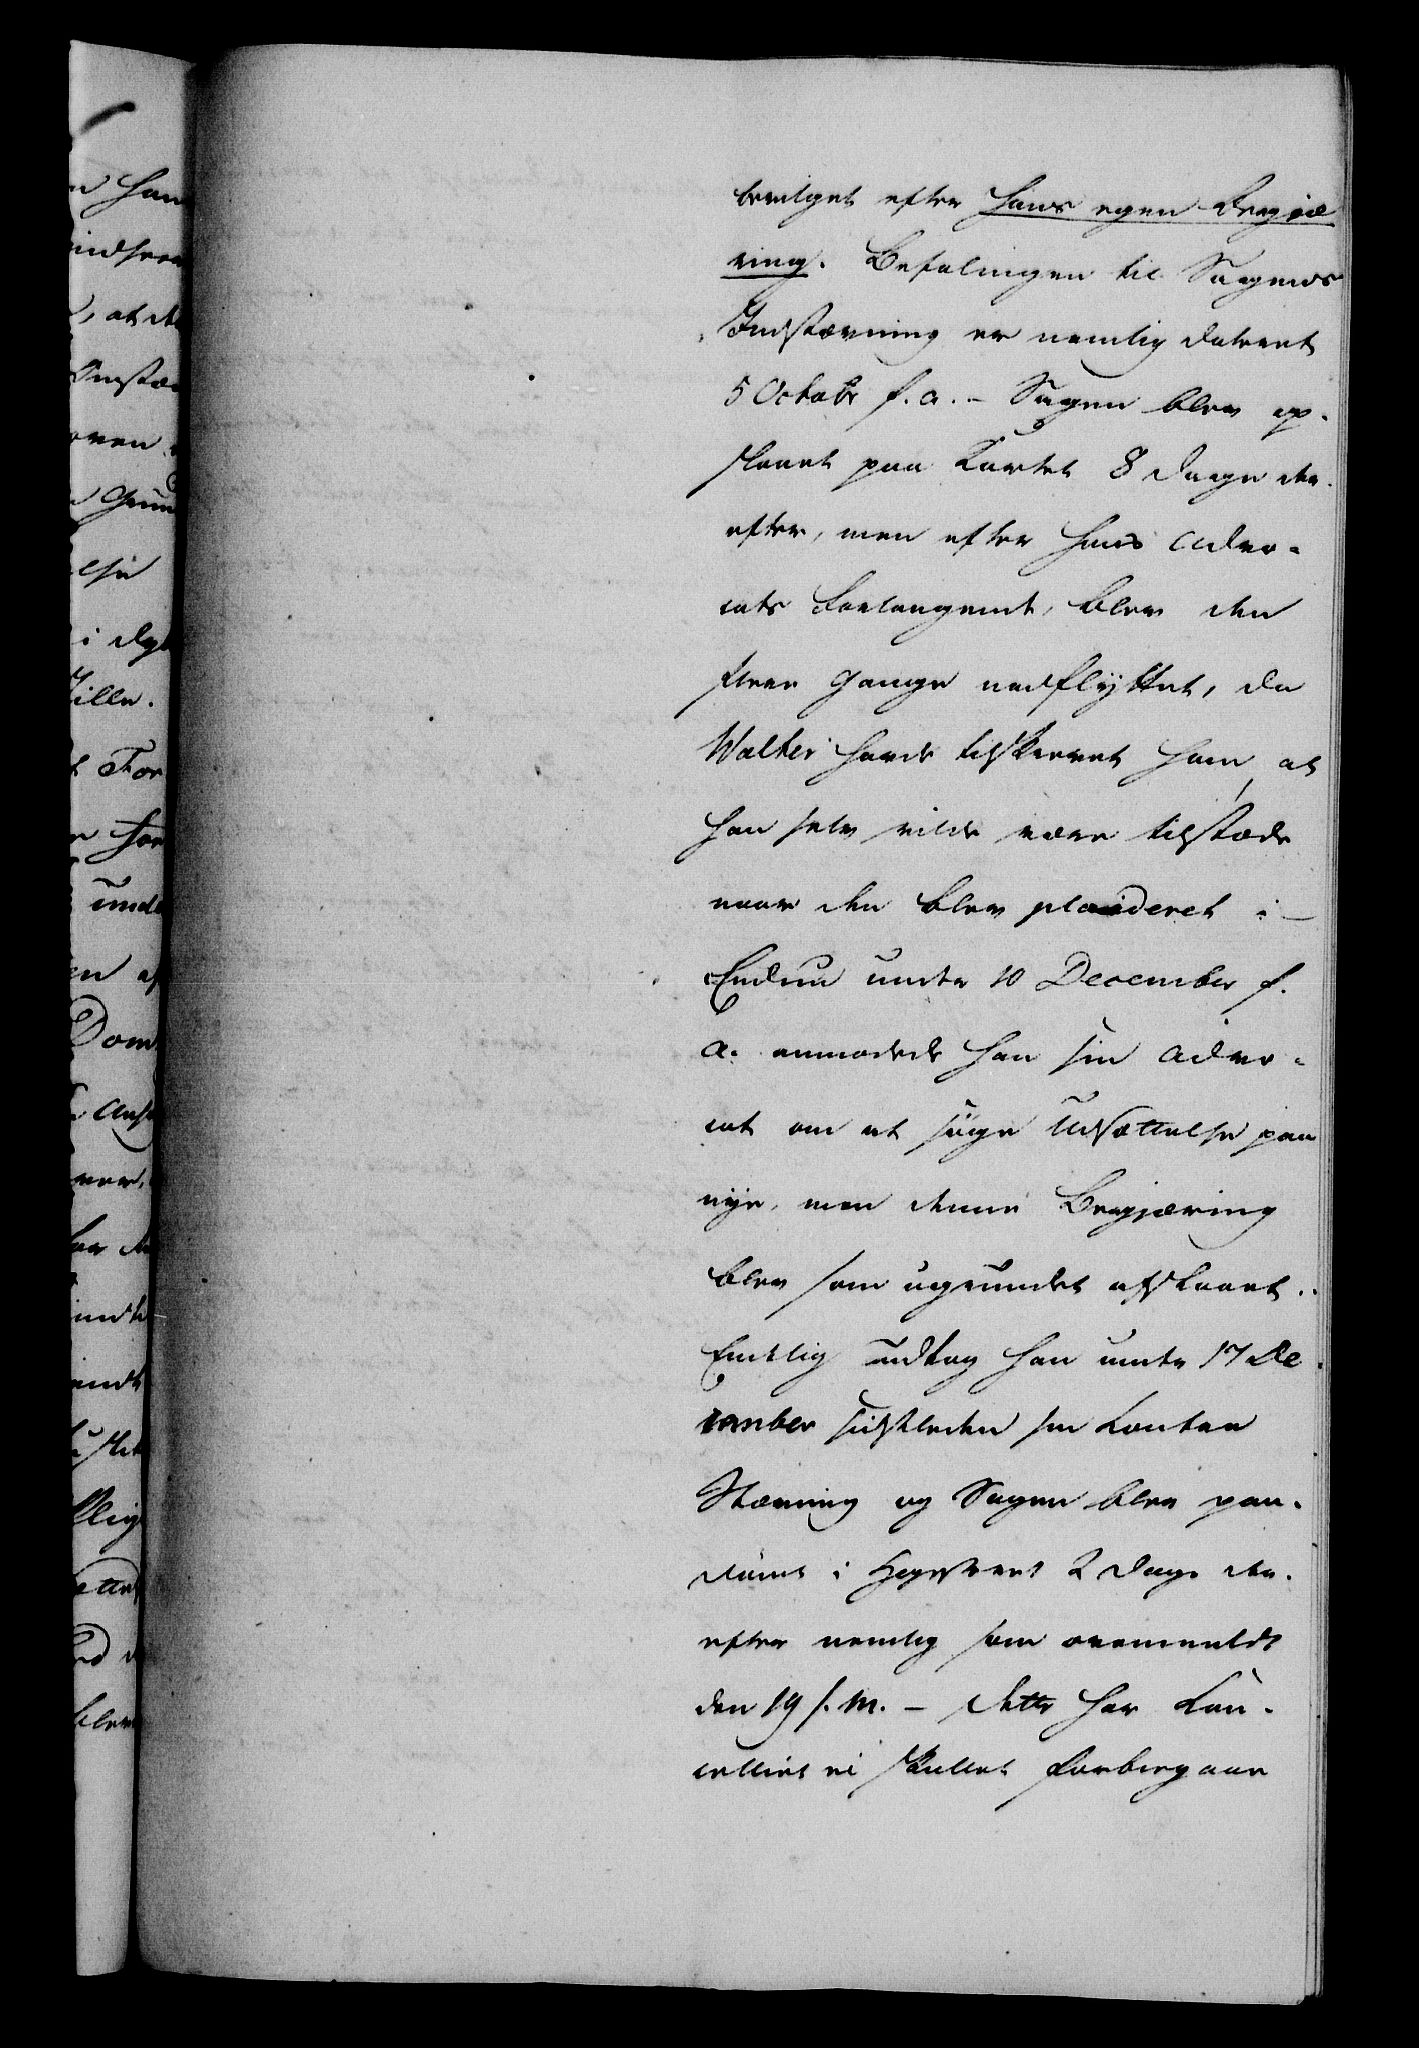 bevilget efter hans egen Begjæ
ring. Befalingen til Sagens
Indstævning er nemlig dateret
5 Octobr f. a. - Sagen blev op-
slaaet paa Kartet 8 Dage der-
efter, men efter hans Advo-
cats Forlangende, blev den
flere Gange nedflÿttet, da
Walter havde tilskrevet ham, at
han selv vilde være tilstæde
naar den blev plaideret i
Endnu under 10 December f.
a. anmodede han sin Advo-
cat om at søge Udsættelse paa
nye, men denne Begjæring
blev som ugrundet afslaaet.
Endelig udtog han under 17 De
cember sidstleden sin Contra
Stævning og Sagen blev paa-
dømt i Høyesteret 2 Dage der-
efter nemlig som ovenmeldt
den 19 s. M. - Dette har Can-
celliet ei skullet forbiegaae